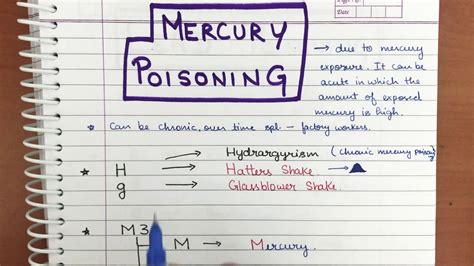 MERCURY
POISONING
→ due to mercury
exposure. It can be
acute in which the
amount of exposed
mercury is high.
* Can be chronic, over time spl – factory workers.
→ Hydrargyrism (chronic mercury poison)
* H → Hatters Shake →
g → Glassblower Shake.
* M3
M → Mercury.
Date